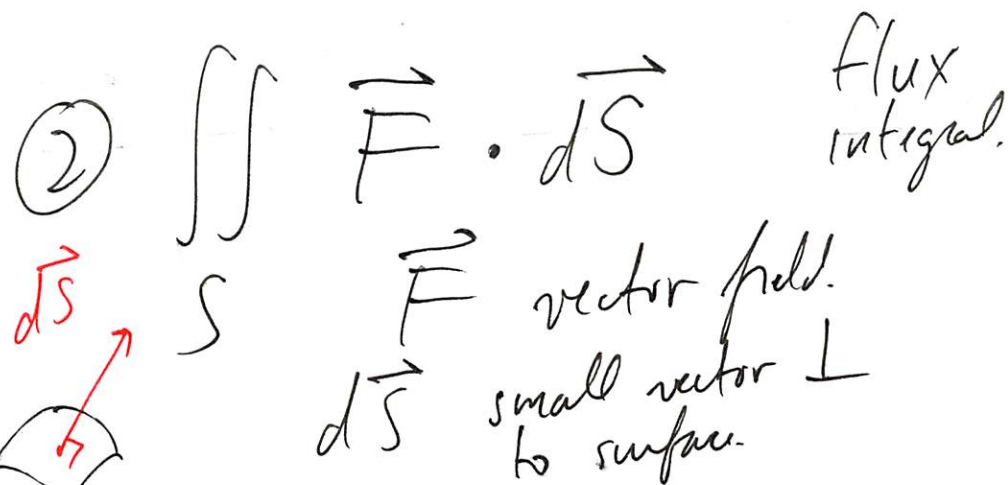 ② ∬ F⃗ · dS⃗ flux
integral.
dS⃗ S F⃗ vector field.
dS⃗ small vector ⊥
to surface.